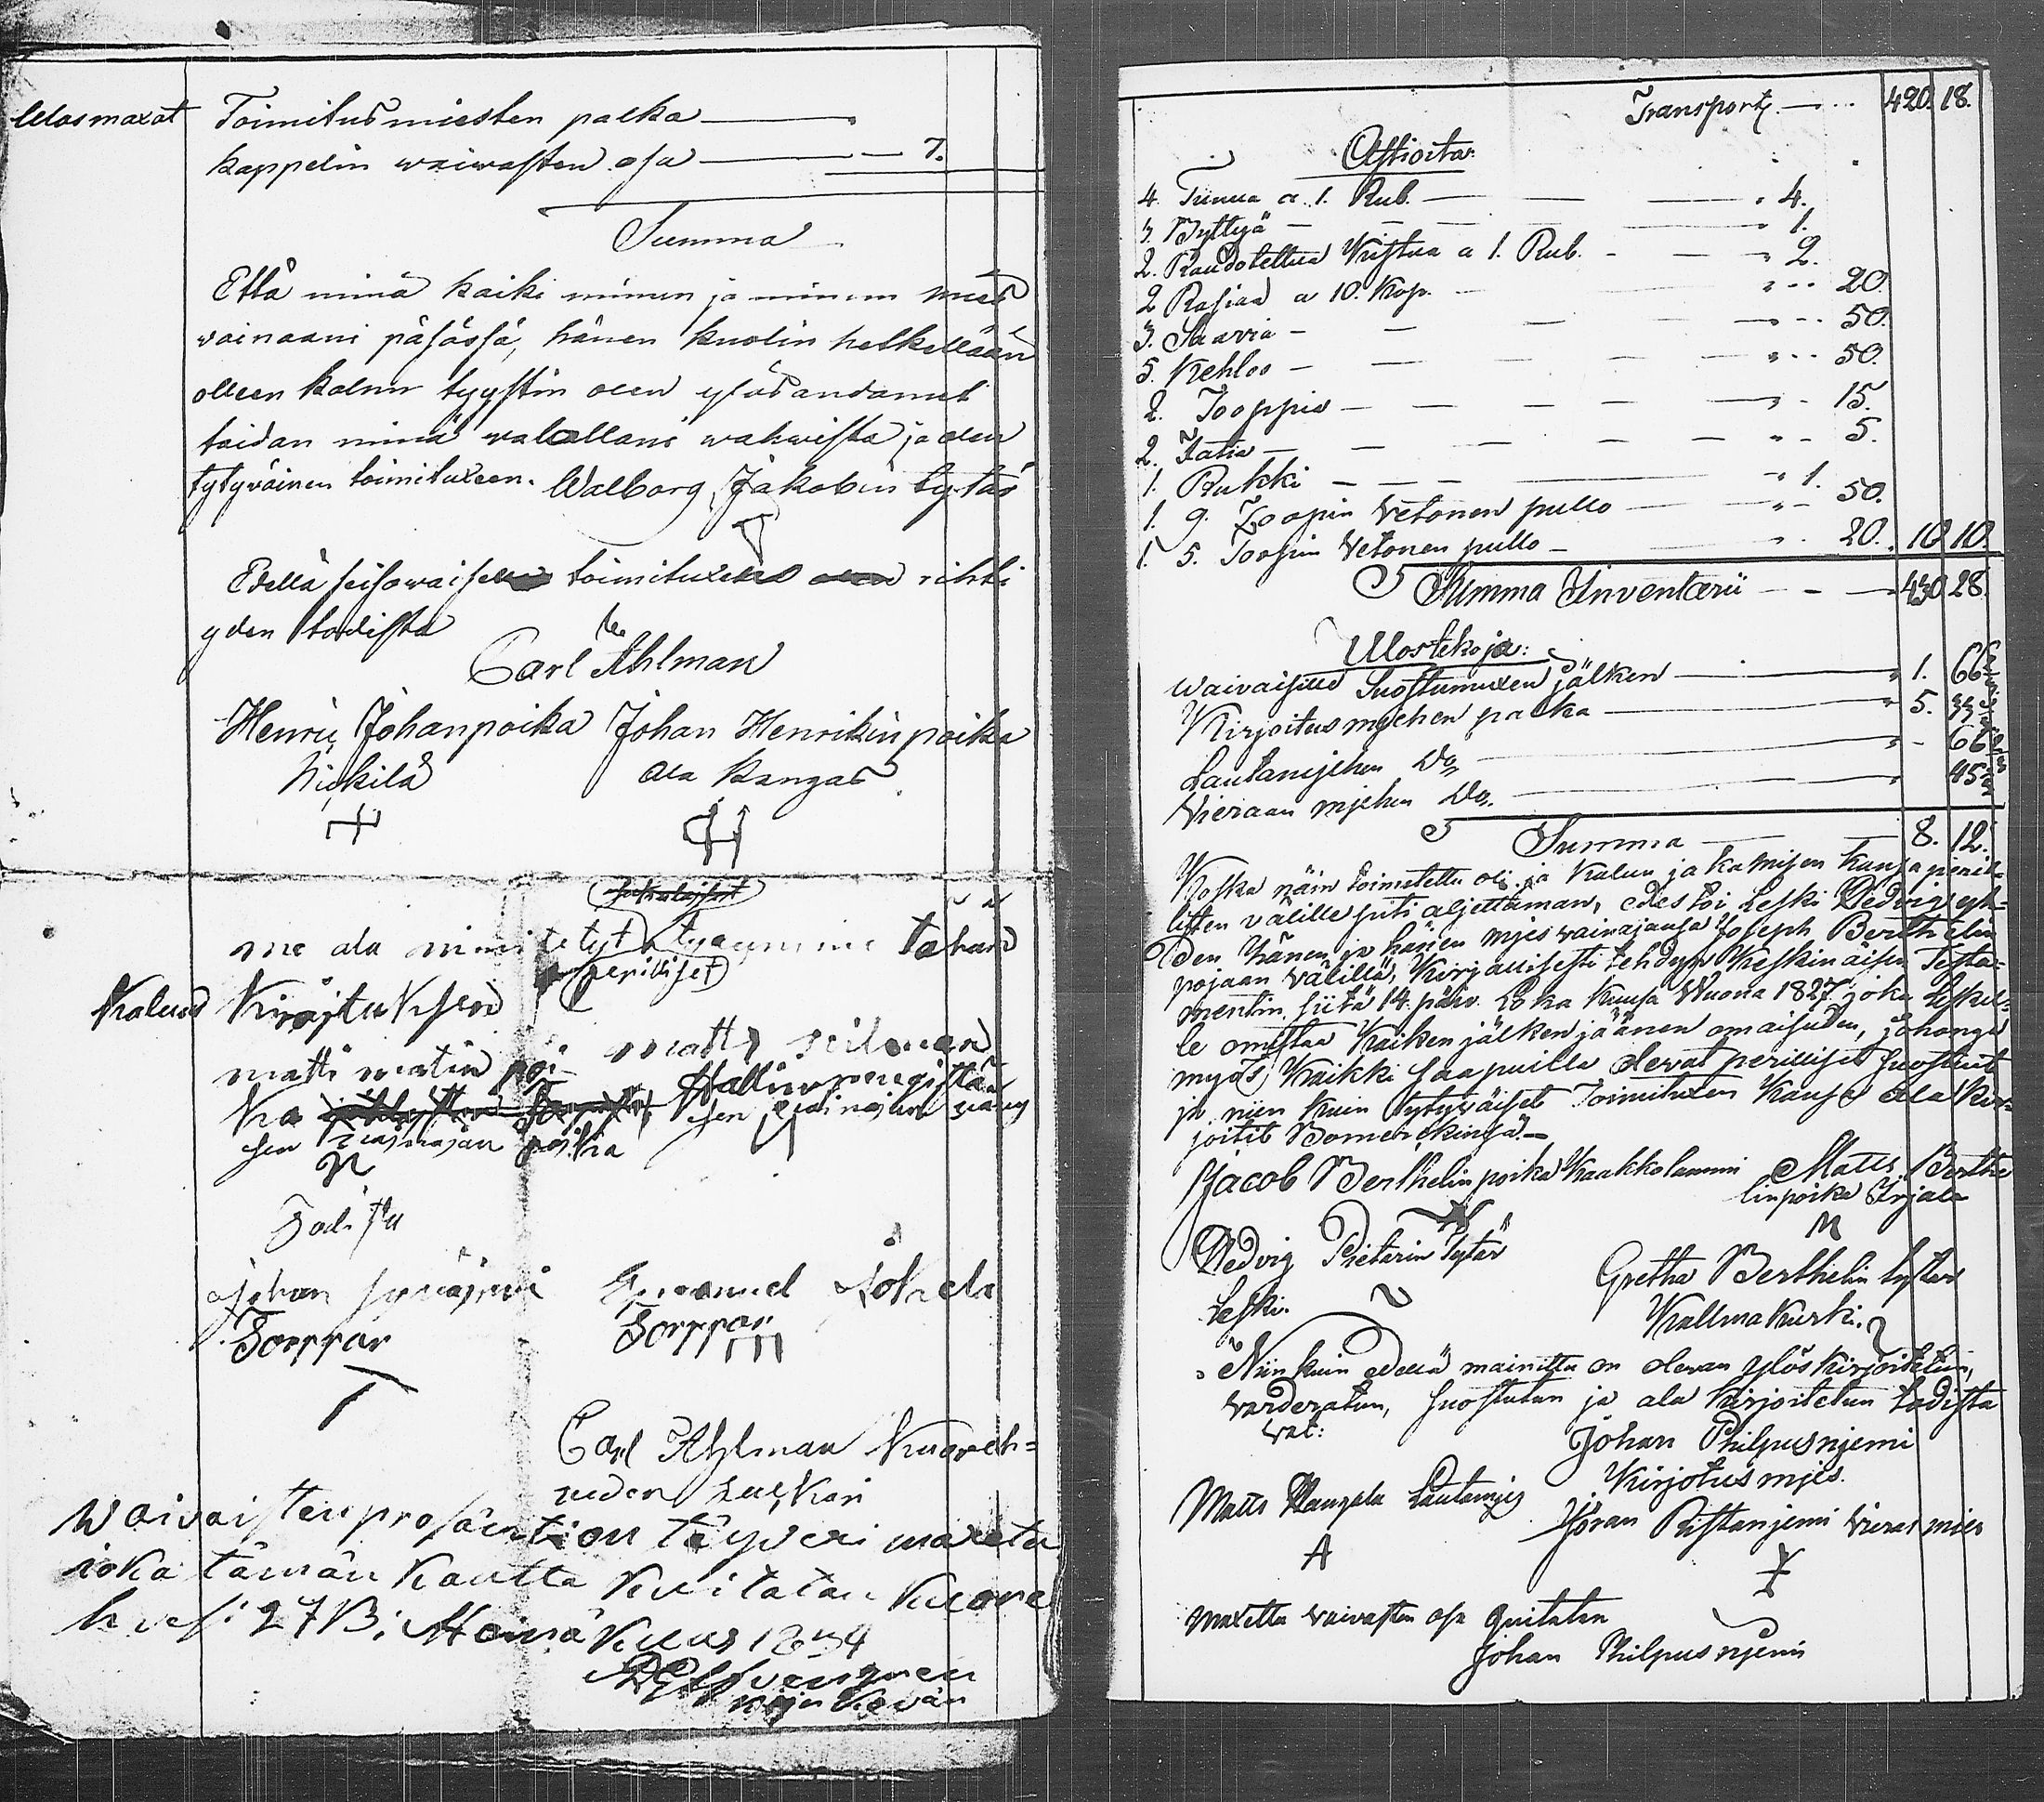 Ulosmaxot Toimitusmiesten palka
kappelin waiwasten osa — 7.
Summa
Että minä kaiki minun ja minun mies
vainaani päsässä, hänen kuolin hetkellään
olleen kalun tyystin olen ylösandanut
taidan minä walallani wahwista ja olen
tytyväinen toimituxeen. Walborg Jakobin tytär
Edellä seisowaisen toimituxen rihti
yden todista
Carl Ahlman
Henric Johanpoika Johan Henrikin poika
Nickilä Ala Kangas
me ala nimitetyt tahan
perilliset
Kalun Kirojtuksen
matti matin poi- matts
ka
sen poika
Todista
johan Emanuel Jokela
Torppar Torppar
Carl Ahlman Kuoreh-
veden Lukkari
Waivaisten prosäntti on täyveri maxettu
ioka tämän kautta kuitatan Kuore
hvesi 27 B; Heinäkuus 1834
Transport — 420. 18.
Astioita:
4. Tunua a. 1. Rub. — 4.
3. Byttyä — 1.
2. Raudotettua Kistua a 1. Rub. — 2.
2 Rasiaa a 10. Kop. — 20.
3. Saavia — 50.
5. Kehloo — 50.
2. Tooppia — 15.
2. Fatia — 5.
1. Rukki — 1.
1. 9. Toopin Vetonen pullo — 50.
1. 5. Toopin Vetonen pullo — 20. 10 10
Summa Inventarii — 430 28.
Ulostekoja:
Waivaisille Suostumuxen jälken — 1. 66
Kirjoitusmjehen palka — 5. 33
Lautamjehen Do — 66
Vieraan mjehen Do. — 45
Summa — 8. 12.
Koska näin toimitettu oli ja Kalun jakamisen kansa peril-
listen välille piti aljettaman, edestoi Leski Hedvig yh-
den hänen ja hänen mjes vainajansa Joseph Berthelin
pojaan välillä, Kirjallisesti tehdyn Keskinäisen Testa-
mentin siitä 14. päiv. Loka Kuusa Wuona 1827. joka Leskel-
le omistaa Kaiken jälkenjäänen omaisuden, johonga
myös Kaikki saapuilla olevat perilliset suostuit
ja niin kuin tytyväiset Toimituxen Kansa ala Kir-
joitit Bomerckinsä.—
Jacob Berthelinpoika Kaakkolammi Matts Berthe
linpoika Irjala
Hedvig Pietarin tytär
Leski. Gretha Berthelin tytär
Kallmakurki.
Niinkuin edellä mainittu on olevan ylöskirjoitetun,
värderatun, suostutun ja ala kirjoitetun todista
vat: Johan Philpusnjemi
Kirjotusmjes.
Matts Hangala Lautamjes
Jöran Ristanjemi Vieras mies
Maxettu vaivasten osa Quitatan
Johan Philpusnjemi